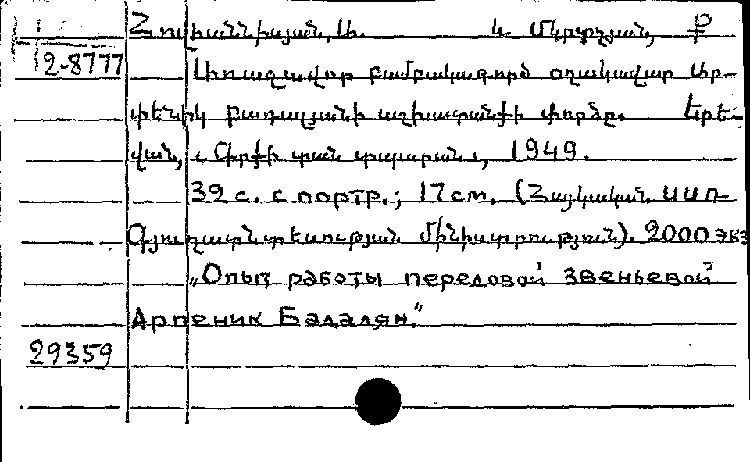 Հովհաննիսյան, Ա. և Մկրտչյան, Ք
12-8777
Առաջավոր բամբակագործ օղակավար Ար-
փենիկ Բադալյանի աշխատանքի փորձը. Երե-
վան, «Գիրքի տան տպարան», 1949.
39 с. с портр.; 17 см. (Հայկական ՍՍՌ
Գյուղատնտեսության մինիստրություն). 2000 экз
„Опыт работы передовой звеньевой
Арпеник Бадалян."
29359